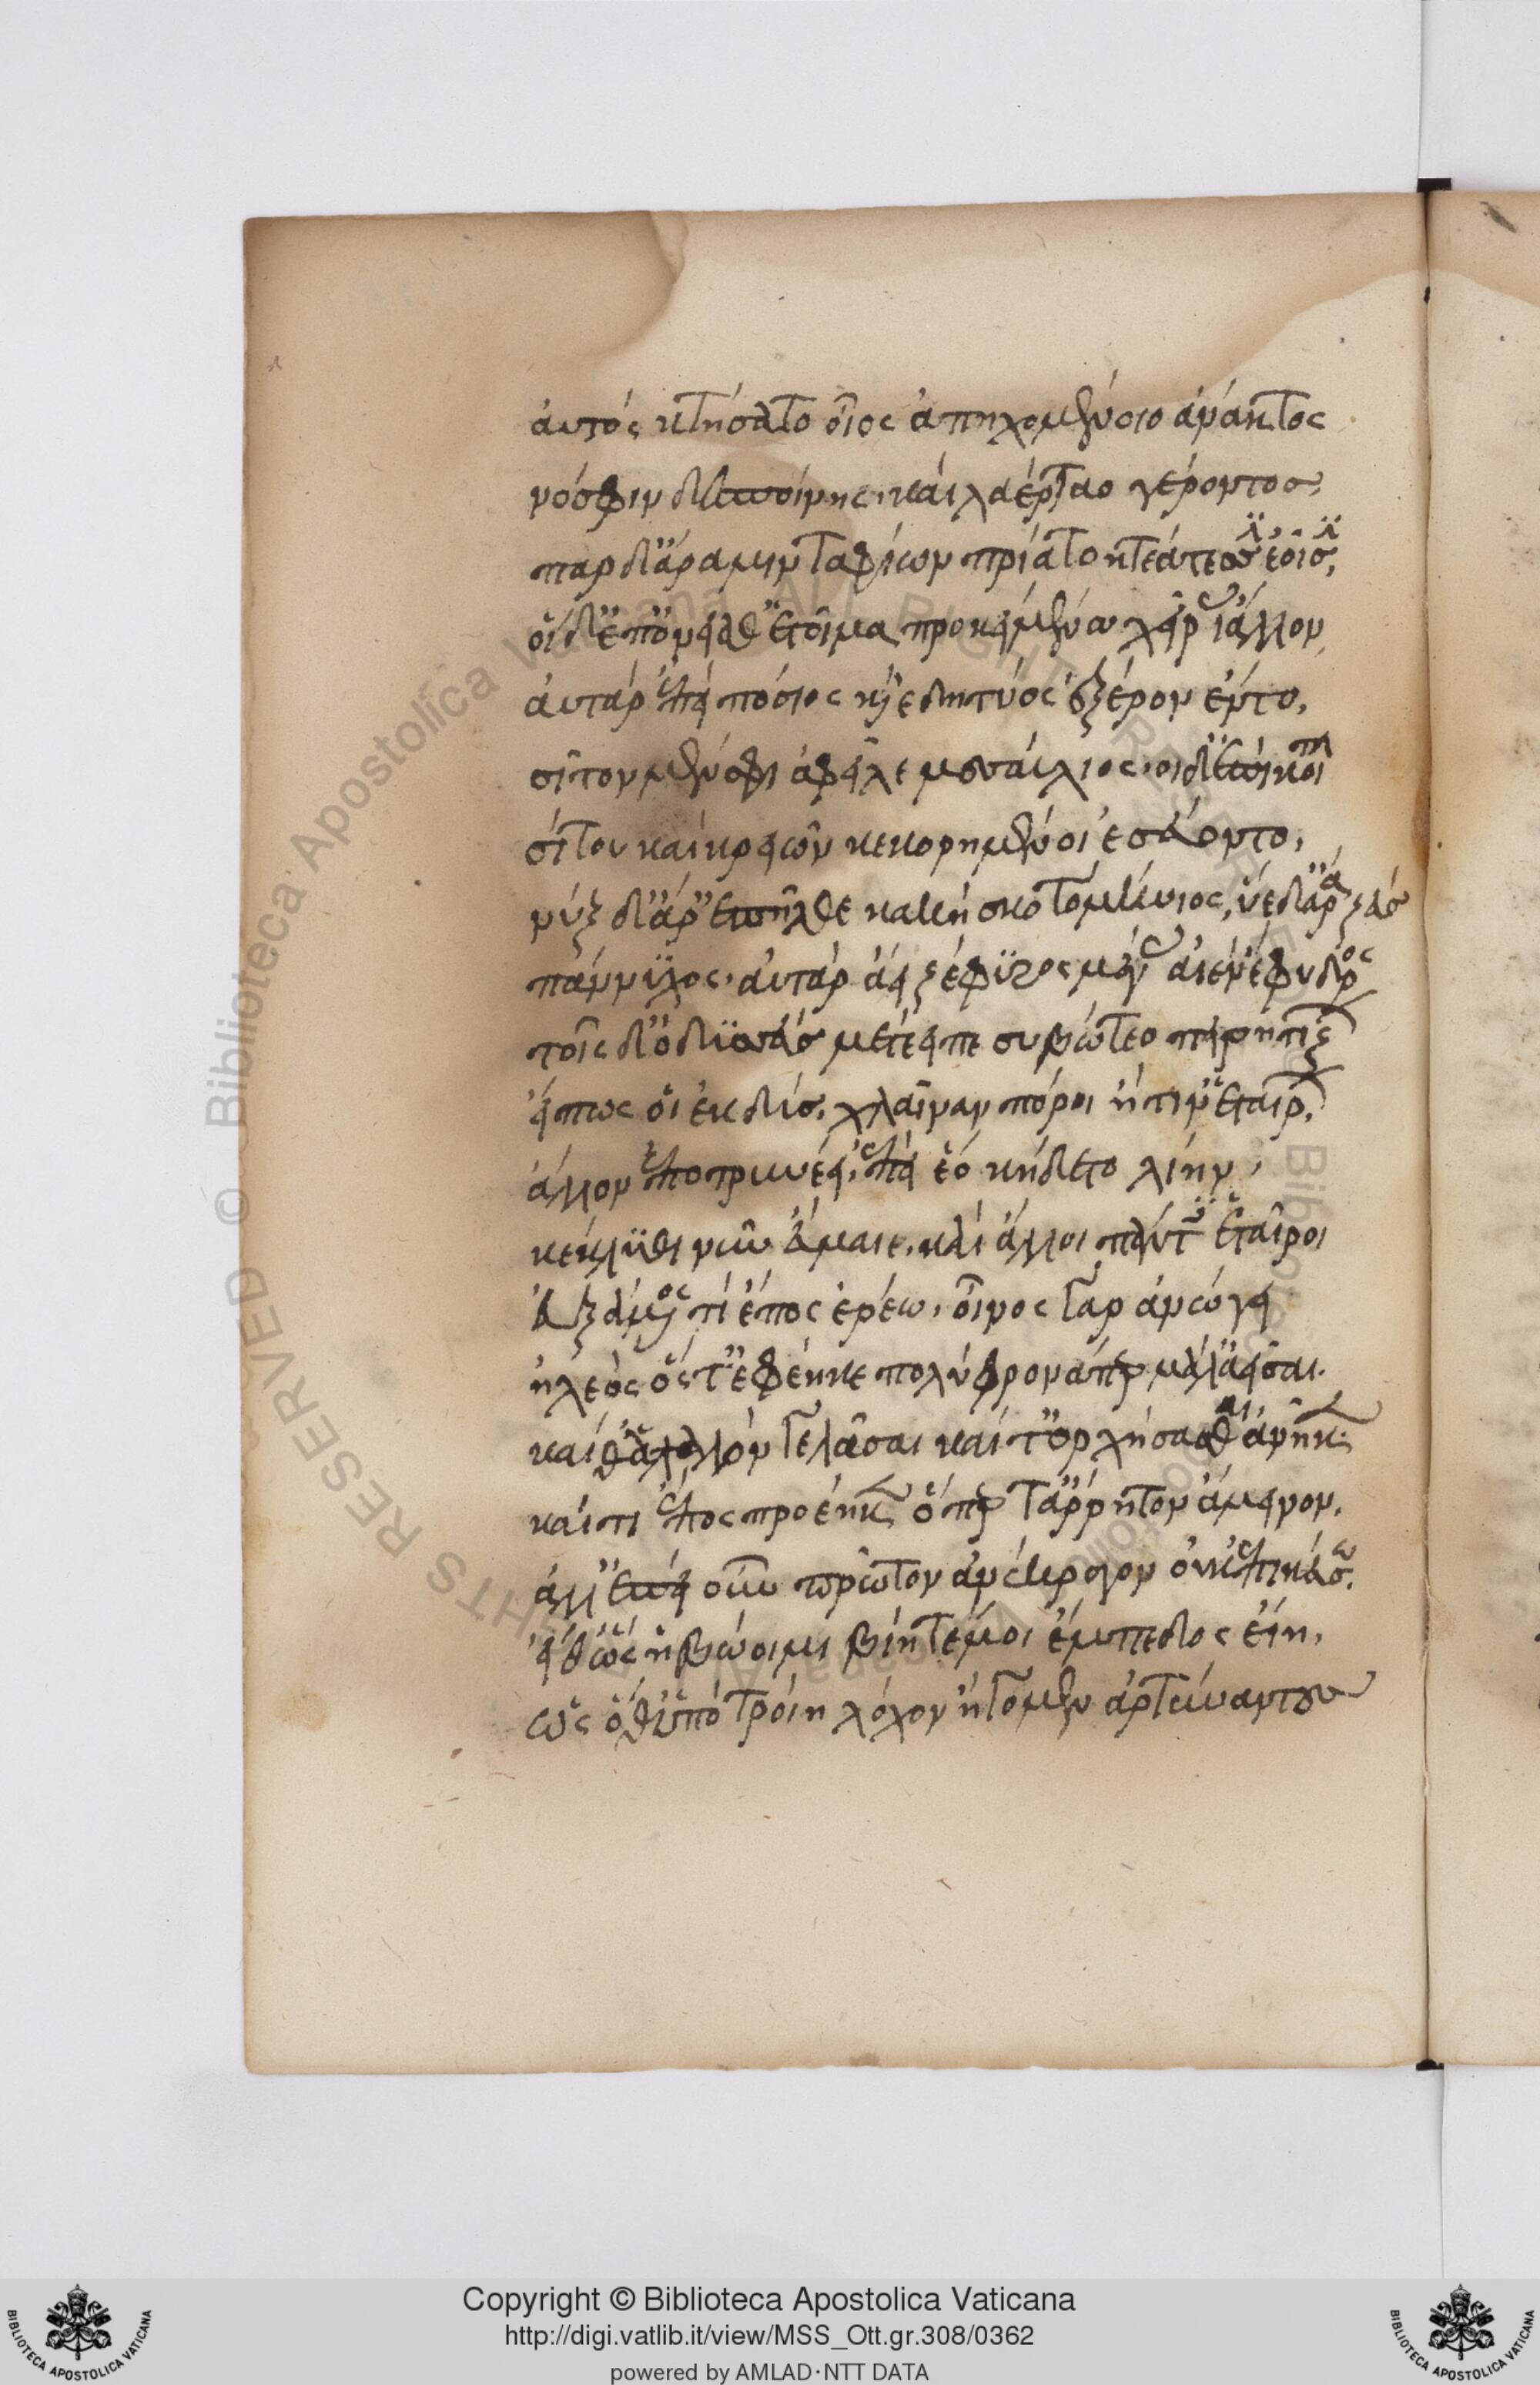 ἀυτός κτήσατο οἶος ἀποιχομένοιο ἄνακτος
νόσφιν δεσποίνης, καὶ λαέρταο γέροντος,
παρ δ' ἄρα μιν ταφίων πρίατο κτεάτεσσιν ἑοῖσιν,
οἱ δ' ἐπ' ὀνείαθ' ἑτοῖμα προκείμενα χεῖρας ἴαλλον,
ἀυτάρ ἐπεί πόσιος καὶ ἐδητύος ἐξ ἔρον ἕντο,
σῖτον μέν σφι ἀφεῖλε μεσαύλιος, οἱ δ' ἐπὶ κοῖτον
σίτου καὶ κρειῶν κεκορημένοι ἐσεύοντο,
νύξ δ' ἄρ' ἐπῆλθε κακή σκοτομήνιος, ὗε δ' ἄρα ζεύς
πάννυχος, ἀυτάρ ἄει ζέφυρος μέγας αἰέν ἔφυδρος
τοῖς δ' ὀδυσεύς μετέειπε συβώτεω πειρητίζων
εἴπως οἱ ἐκδύς, χλαῖναν πόροι ἤ τιν' ἑταίρων,
ἄλλον ἐποτρύνει, ἐπεί ἑό κήδετο λίην,
κέκλυθι νῦν εὔμαιε, καὶ ἄλλοι πάντες ἑταῖροι
εὐξάμενός τι ἔπος ἐρέω, οἶνος γαρ ἀνώγει
ἠλεός ὅς τ' ἐφέηκε πολύφρονά περ μάλ' ἀεῖσαι.
καί θ' ἁπαλόν γελᾶσαι καί τ' ὀρχήσασθαι ἀνῆκε
καί τι ἔπος προέηκεν ὅπερ τ' ἄρρητον ἄμεινον.
ἀλλ' ἐπεί οὖν πρῶτον ἀνέκραγον οὐκ ἐπικεύσω.
εἴθ' ὥς ἡβώοιμι βίη τέ μοι ἔμπεδος εἴη,
ὡς ὅθ' ὑπό τροίη λόχον ἤγομεν ἀρτύναντες
Copyright © Biblioteca Apostolica Vaticana
http://digi.vatlib.it/view/MSS_Ott.gr.308/0362
powered by AMLAD·NTT DATA